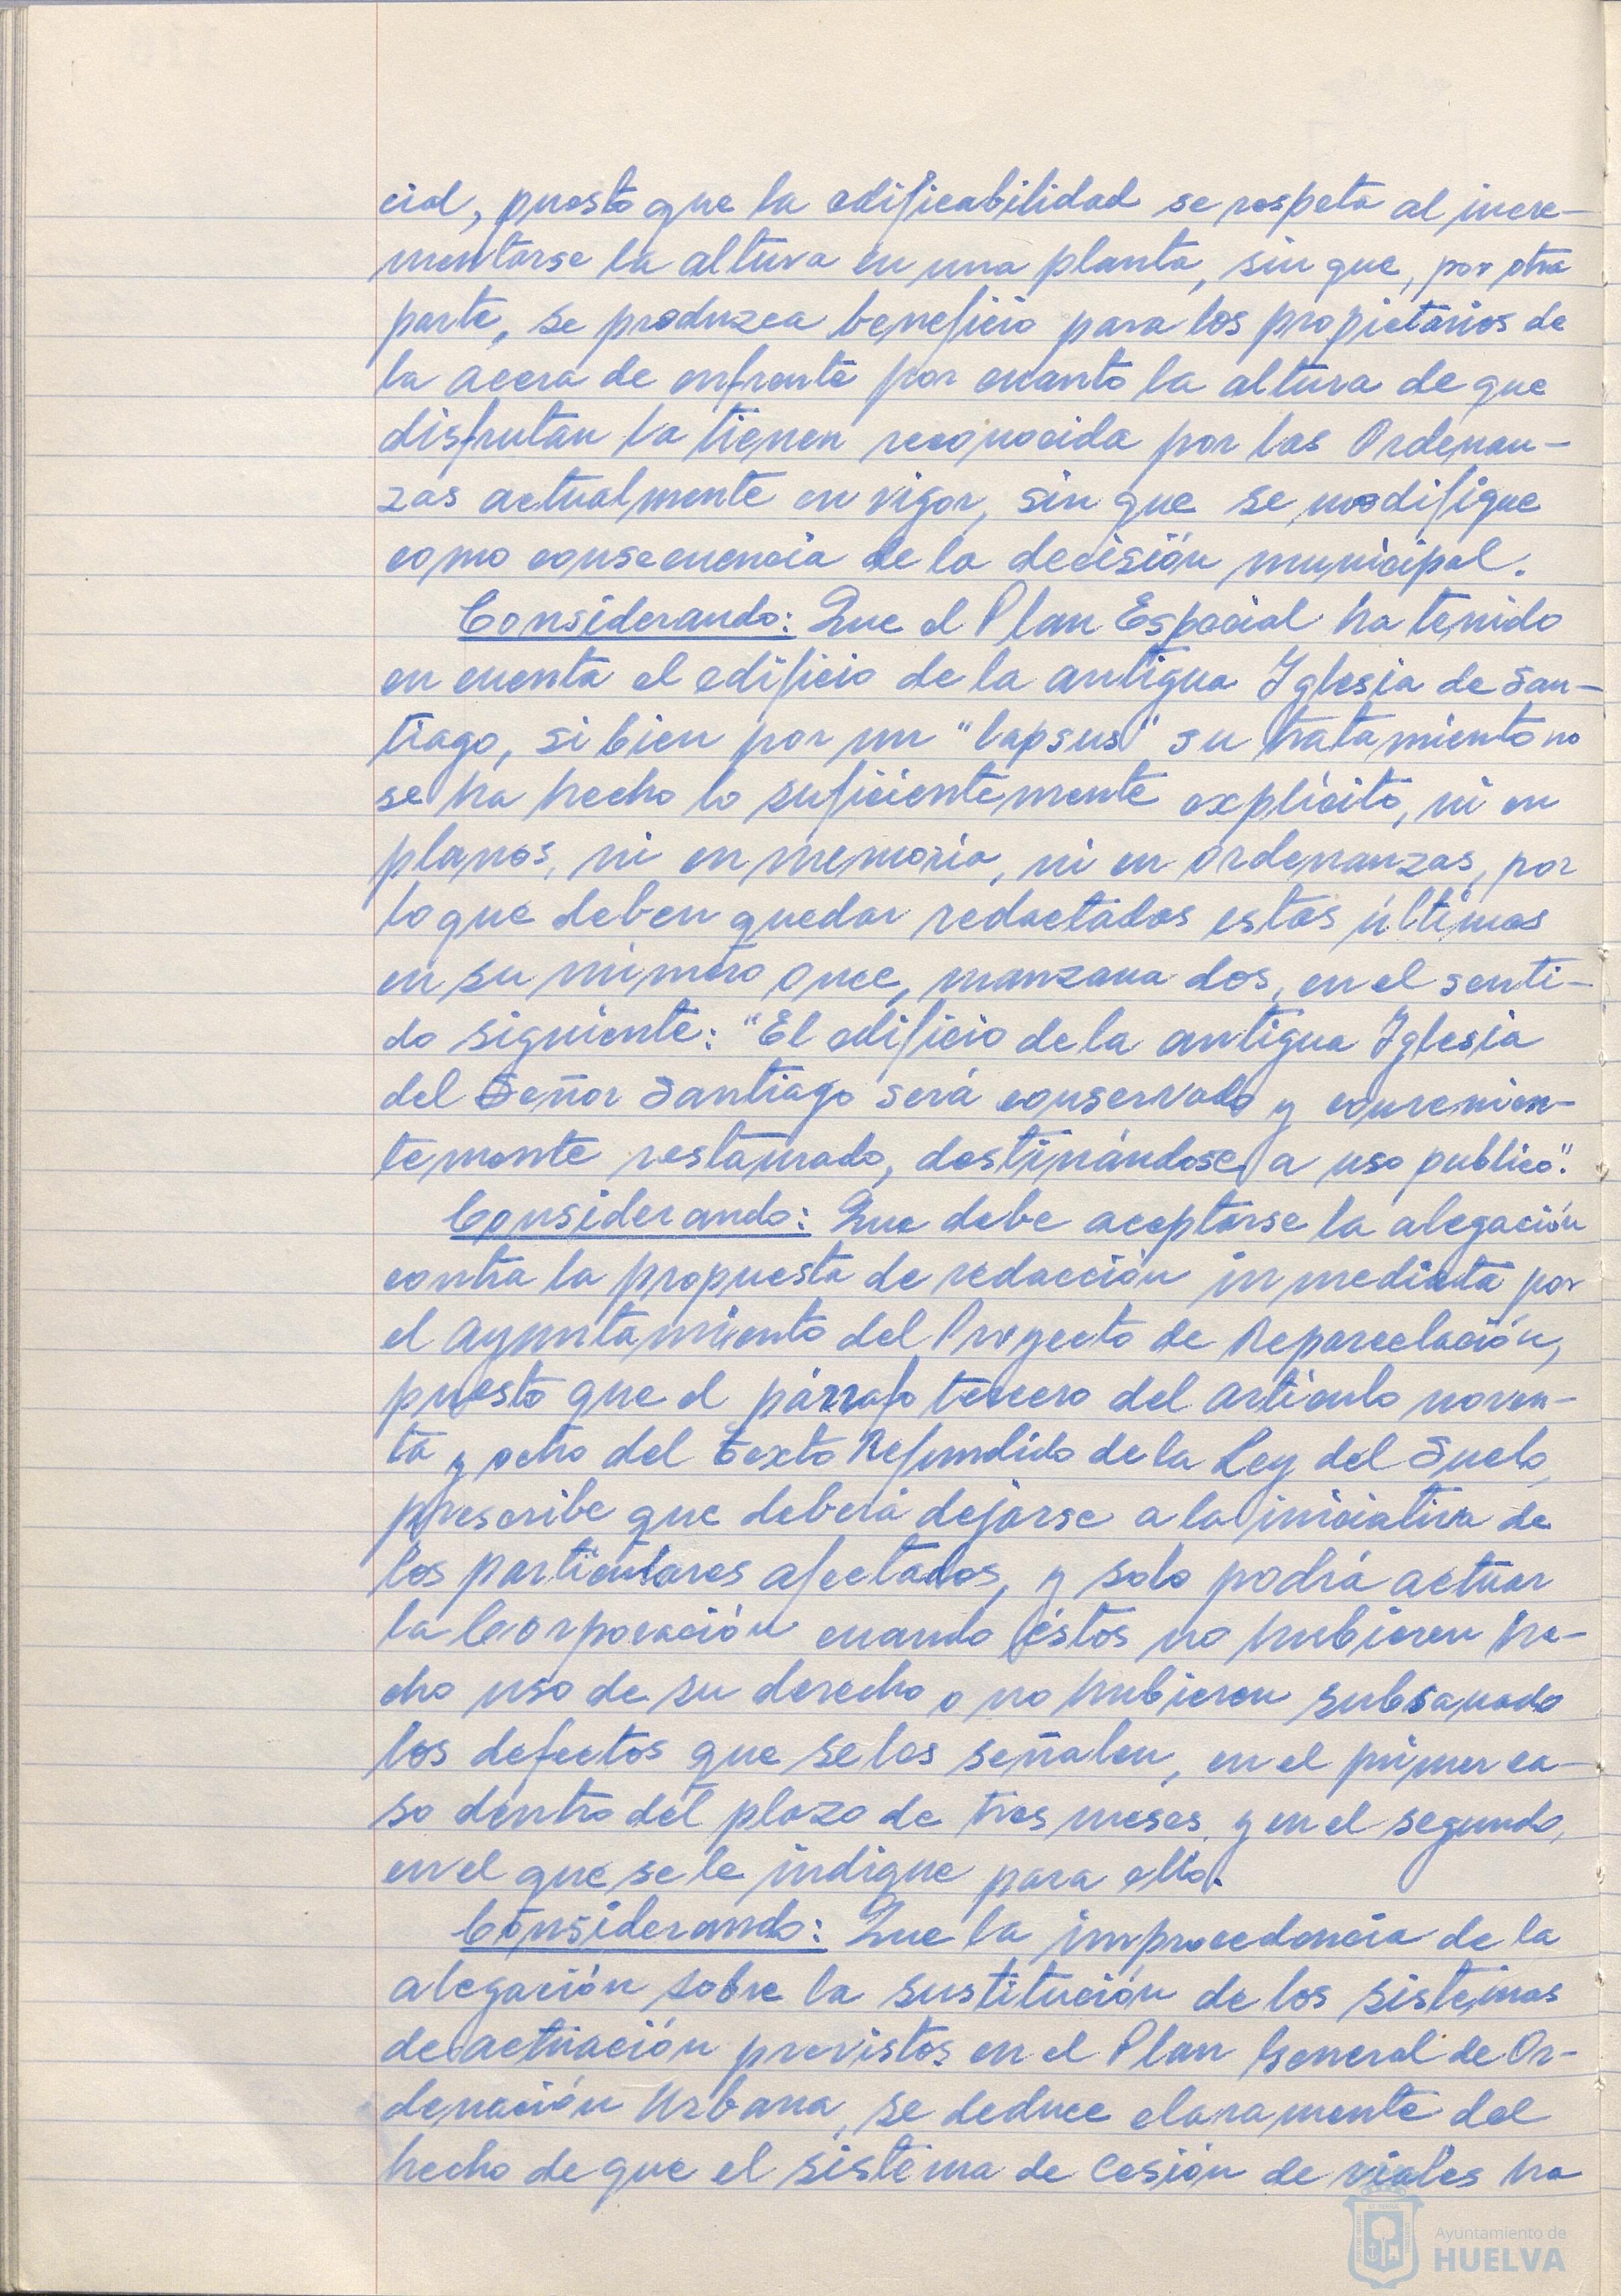 cial, puesto que la edificabilidad se respeta al incre-
mentarse la altura en una planta, sin que, por otra
parte, se produzca beneficio para los propietarios de
la acera de enfrente por cuanto la altura de que
disfrutan la tienen reconocida por las Ordenan-
zas actualmente en vigor, sin que se modifique
como consecuencia de la decisión municipal.
Considerando: Que el Plan Especial ha tenido
en cuenta el edificio de la antigua Iglesia de San-
tiago, si bien por un "lapsus" su tratamiento no
se ha hecho lo suficientemente explícito, ni en
planos, ni en memoria, ni en Ordenanzas, por
lo que deben quedar redactadas estas últimas
en su número once, manzana dos, en el senti-
do siguiente: "El edificio de la antigua Iglesia
del Señor Santiago será conservado y convenien-
temente restaurado, destinándose a uso publico".
Considerando: Que debe aceptarse la alegación
contra la propuesta de redacción inmediata por
el Ayuntamiento del Proyecto de Reparcelación,
puesto que el párrafo tercero del artículo noven-
ta y ocho del Texto Refundido de la Ley del Suelo,
prescribe que deberá dejarse a la iniciativa de
los particulares afectados, y solo podrá actuar
la Corporación cuando éstos no hubieren he-
cho uso de su derecho o no hubieren subsanado
los defectos que se les señalen, en el primer ca-
so dentro del plazo de tres meses y en el segundo,
en el que se le indique para ello.
Considerando: Que la improcedencia de la
alegación sobre la sustitución de los sistemas
de actuación previstos en el Plan General de Or-
denación Urbana, se deduce claramente del
hecho de que el sistema de cesión de viales ha
Ayuntamiento de
HUELVA